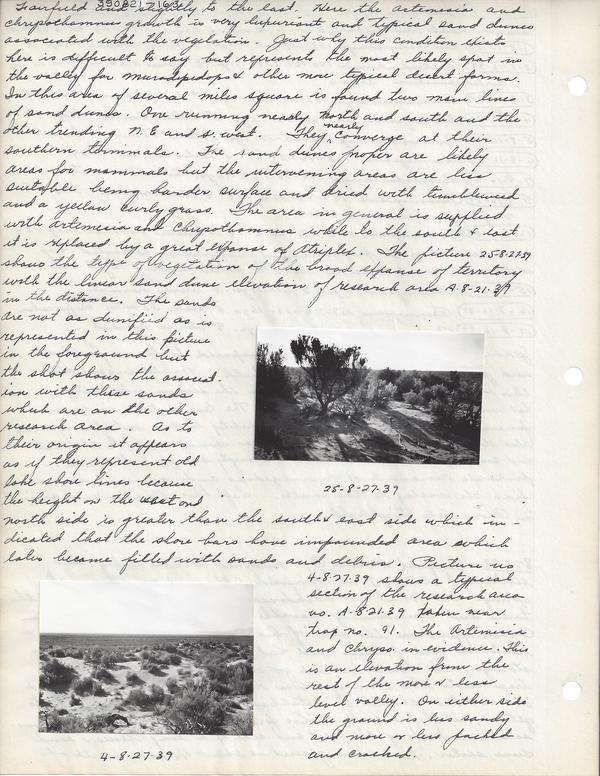 Fairfield and slopely to the east. Here the artemesia and
39082 7163
chrysothamnus growth is very luxuriant and typical sand dunes
associated with the vegetation. Just why this condition exists
here is difficult to say but represents the most likely spot in
the valley for microdipodops & other more typical desert forms.
In this area of several miles square is found two main lines
of sand dunes. One running nearly north and south and the
other trending N.E and s.west. They nearly converge at their
southern terminals. The sand dunes proper are likely
areas for mammals but the intervening areas are less
suitable being harder surface and dried with tumbleweed
and a yellow curly grass. The area in general is supplied
with artemesia and Chrysothamnus while to the south & east
it is replaced by a great expanse of Atriplex. The picture 25-8-27-39
shows the type of vegetation of this broad expanse of territory
with the linear sand dune elevation of research area A-8-21-39
in the distance. The sands
are not as dunified as is
represented in this picture
in the foreground but
the shot shows the associat-
ion with these sands
which are on the other
research area. As to
their origin it appears
as if they represent old
lake shore lines because
the height on the west and
north side is greater than the south & east side which in-
dicated that the shore bars have impounded area which
later became filled with sands and debris. Picture no
25-8-27-39
4-8-27-39 shows a typical
section of the research area
no. A-8-21-39 taken near
trap no. 91. The Artemisia
and Chryso. in evidence. This
is an elevation from the
rest of the more & less
level valley. On either side
the ground is less sandy
and more & less packed
and cracked.
4-8-27-39